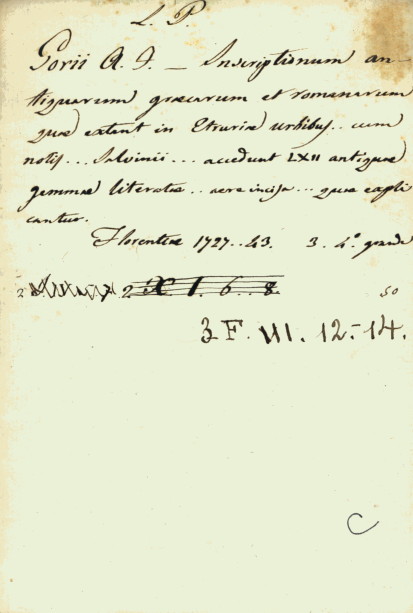 L. P.
Gorii A. F. — Inscriptionum an-
tiquarum græcarum et romanarum
quæ extant in Etruriæ Urbibus.. cum
notis... Salvinii... accedunt LXII antiquæ
gemmæ literatæ.. aere incisæ... quæ expli
cantur.
Florentiæ 1727..43. 3. 4.º grande
2 X 1. 6.. 8 50
3 F. III. 12.-14.
C